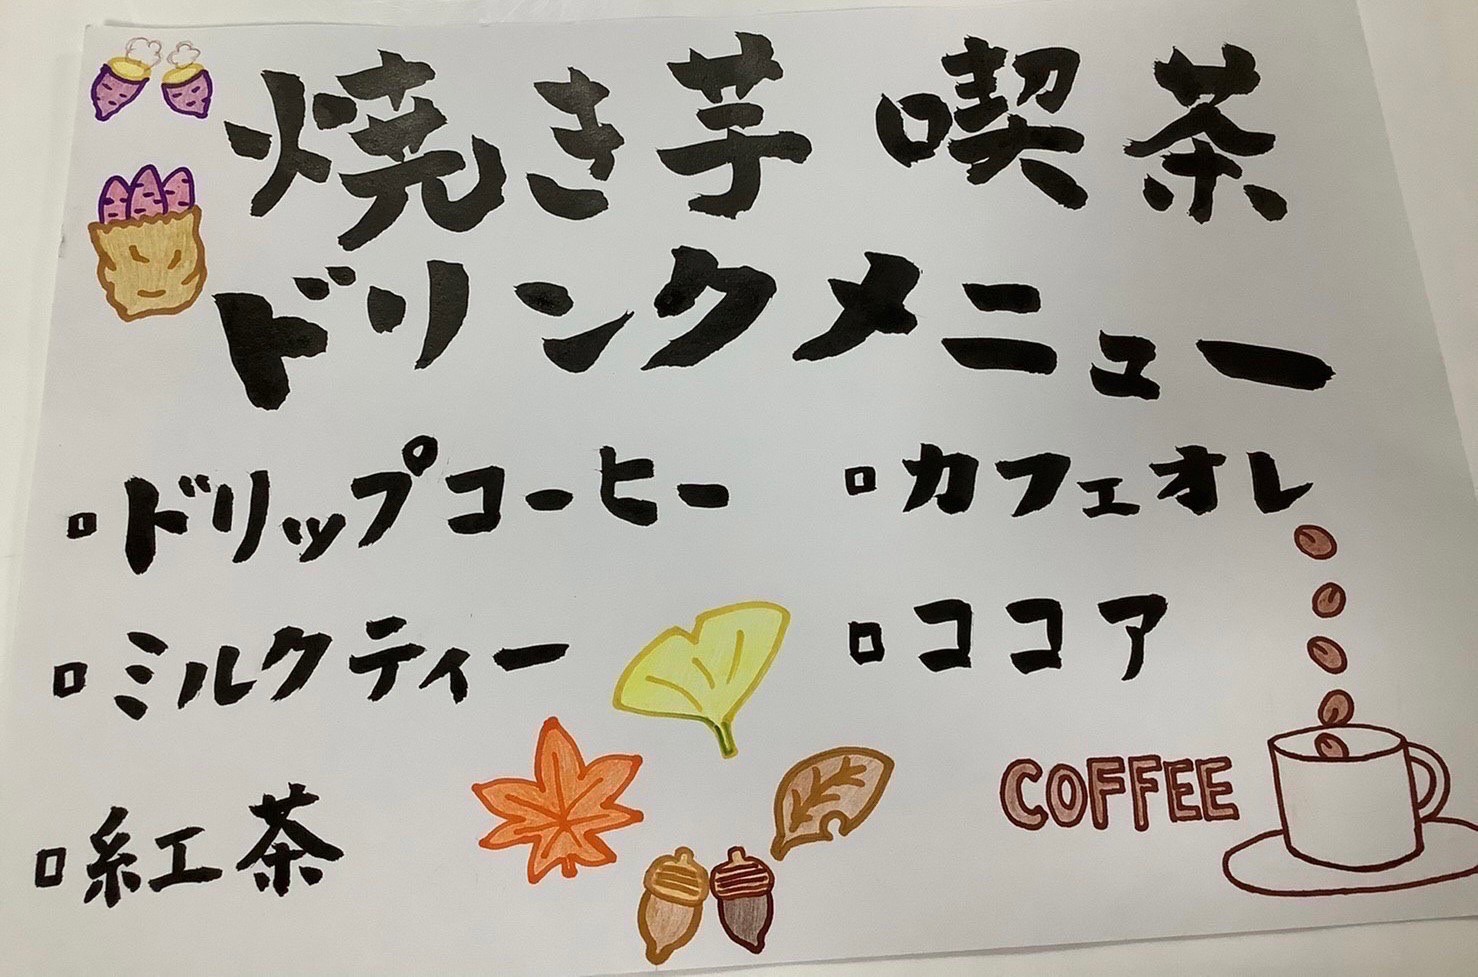 焼き芋 喫茶
ドリンクメニュー
▫ドリップコーヒー
▫カフェオレ
▫ミルクティー
▫ココア
▫紅茶
COFFEE